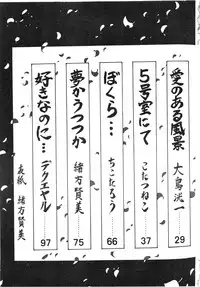 愛のある風景
大島洪一
29
5号室にて
こたつねこ
37
ぼくら…
ちこたろう
66
夢かうつつか
緒方賢美
75
好きなのに…
デクエヤル
97
表紙 緒方賢美